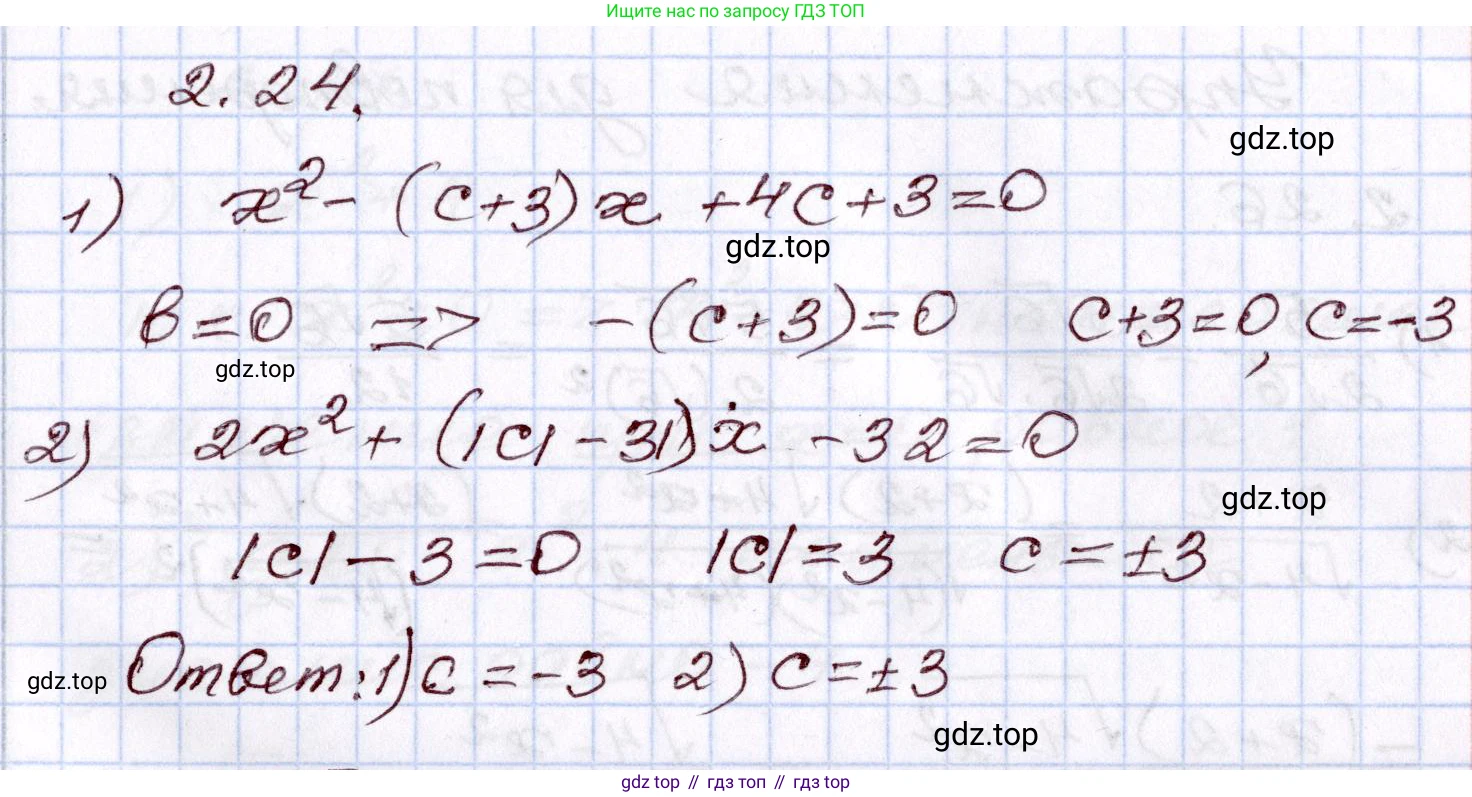 Ищите нас по запросу ГДЗ ТОП
2.24.
gdz.top
1) x² - (c+3)x +4c+3=0
gdz.top
в=0 => -(c+3)=0 c+3=0, c=-3
gdz.top
2) 2x² + (|c| - 3|)x - 32=0
gdz.top
|c| - 3 = 0 |c|=3 c = ±3
gdz.top Ответ: 1) c = -3 2) c = ±3
gdz.top
gdz top // гдз топ // gdz top